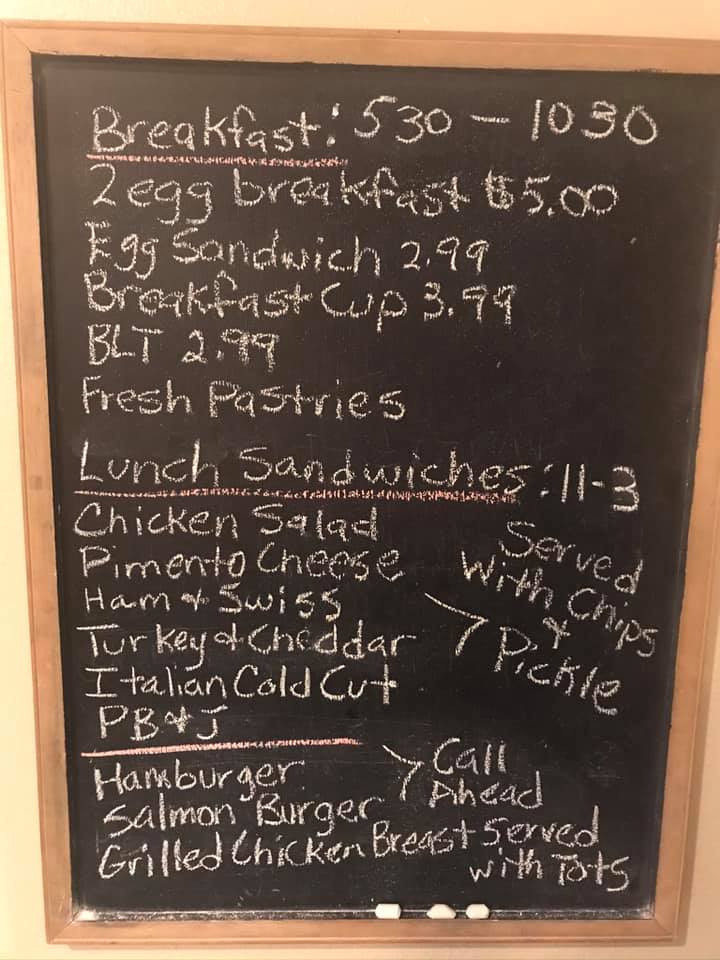 Breakfast: 530 - 1030
2 egg breakfast $5.00
Egg Sandwich 2.99
Breakfast Cup 3.99
BLT 2.99
Fresh Pastries
Lunch Sandwiches: 11-3
Chicken Salad
Pimento Cheese
Ham & Swiss
Turkey & Cheddar
Italian Cold Cut
PB & J
Served
With Chips
&
Pickle
Hamburger
Salmon Burger
Call
Ahead
Grilled Chicken Breast Served
with Tots